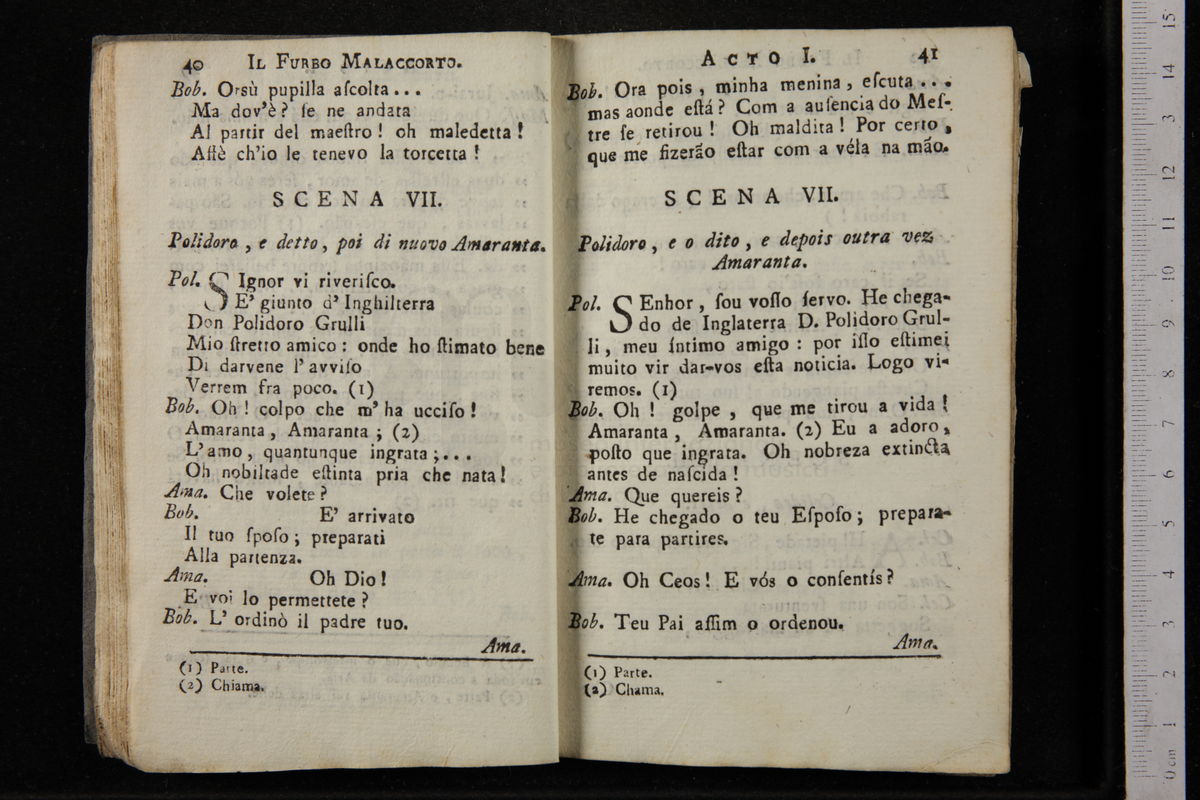 40 IL FURBO MALACCORTO.
Bob. Orsù pupilla aſcolta...
Ma dov'è? ſe ne andata
Al partir del maeſtro! oh maledetta!
Affè ch'io le tenevo la torcetta!
SCENA VII.
Polidoro, e detto, poi di nuovo Amaranta.
Pol. SIgnor vi riveriſco.
E' giunto d'Inghilterra
Don Polidoro Grulli
Mio ſtretto amico: onde ho ſtimato bene
Di darvene l'avviſo
Verrem fra poco. (1)
Bob. Oh! colpo che m'ha ucciſo!
Amaranta, Amaranta; (2)
L'amo, quantunque ingrata;...
Oh nobiltade eſtinta pria che nata!
Ama. Che volete?
Bob. E' arrivato
Il tuo ſpoſo; preparati
Alla partenza.
Ama. Oh Dio!
E voi lo permettete?
Bob. L'ordinò il padre tuo.
Ama.
(1) Parte.
(2) Chiama.
ACTO I. 41
Bob. Ora pois, minha menina, eſcuta...
mas aonde eſtá? Com a auſencia do Meſ-
tre ſe retirou! Oh maldita! Por certo,
que me fizerão eſtar com a véla na mão.
SCENA VII.
Polidoro, e o dito, e depois outra vez
Amaranta.
Pol. SEnhor, ſou voſſo ſervo. He chega-
do de Inglaterra D. Polidoro Grul-
li, meu íntimo amigo: por iſſo eſtimei
muito vir dar-vos eſta noticia. Logo vi-
remos. (1)
Bob. Oh! golpe, que me tirou a vida!
Amaranta, Amaranta. (2) Eu a adoro,
poſto que ingrata. Oh nobreza extincta
antes de naſcida!
Ama. Que quereis?
Bob. He chegado o teu Eſpoſo; prepara-
te para partires.
Ama. Oh Ceos! E vós o conſentís?
Bob. Teu Pai aſſim o ordenou.
Ama.
(1) Parte.
(2) Chama.
0 cm 1 2 3 4 5 6 7 8 9 10 11 12 13 14 15